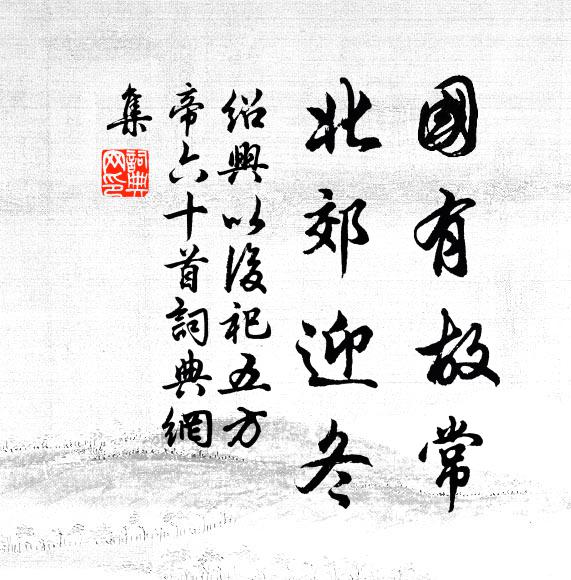 國有故常
北郊迎冬
紹興以後祀五方
帝六十首詞典網
集
詞典
网印